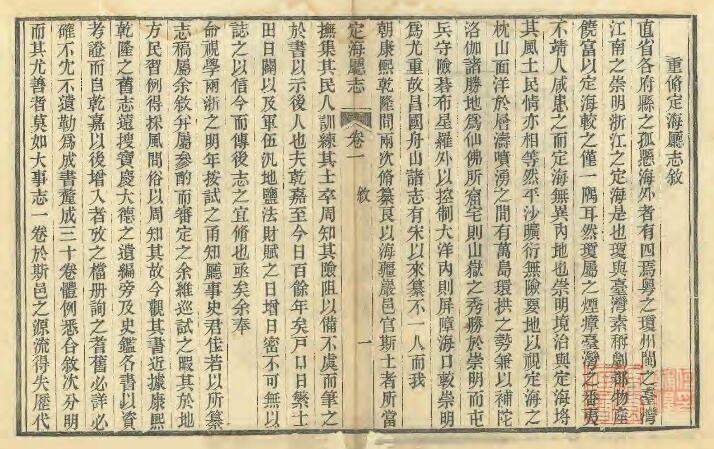 重脩定海廳志敘
直省各府縣之孤懸海外者有四焉粵之瓊州閩之臺灣
江南之崇明浙江之定海是也瓊與臺灣素稱劇郡物產
饒富以定海較之僅一隅耳然瓊屬之煙瘴臺灣之番夷
不靖人咸患之而定海無異內地也崇明境治與定海埒
其風土民情亦相等然平沙曠衍無險要地以視定海之
枕山面洋於層濤噴湧之間有萬島環拱之勢兼以補陀
洛伽諸勝地為仙佛所窟宅則山嶽之秀勝於崇明而屯
兵守險碁布星羅外以控制大洋內則屏障海口較崇明
為尤重故昌國舟山諸志有宋以來纂不一人而我
朝康熙乾隆間兩次脩纂良以海疆嚴邑官斯土者所當
定海廳志
卷一
敘
一
撫集其民人訓練其士卒周知其險阻以備不虞而筆之
於書以示後人也夫乾嘉至今日百餘年矣戶口日繁土
田日闢以及軍伍汛地鹽法財賦之日增日密不可無以
誌之以信今而傳後志之宜脩也亟矣余奉
命視學兩浙之明年按試之甬知廳事史君任若以所纂
志稿屬余敘并屬參酌而審定之余維巡試之暇其於地
方民習例得採風問俗以周知其故今觀其書近據康熙
乾隆之舊志遠搜寶慶大德之遺編旁及史鑑各書以資
考證而自乾嘉以後增入者攷之檔册詢之耆舊必詳必
確不宂不遺勒為成書釐成三十卷體例悉合敘次分明
而其尤善者莫如大事志一卷於斯邑之源流得失歷代